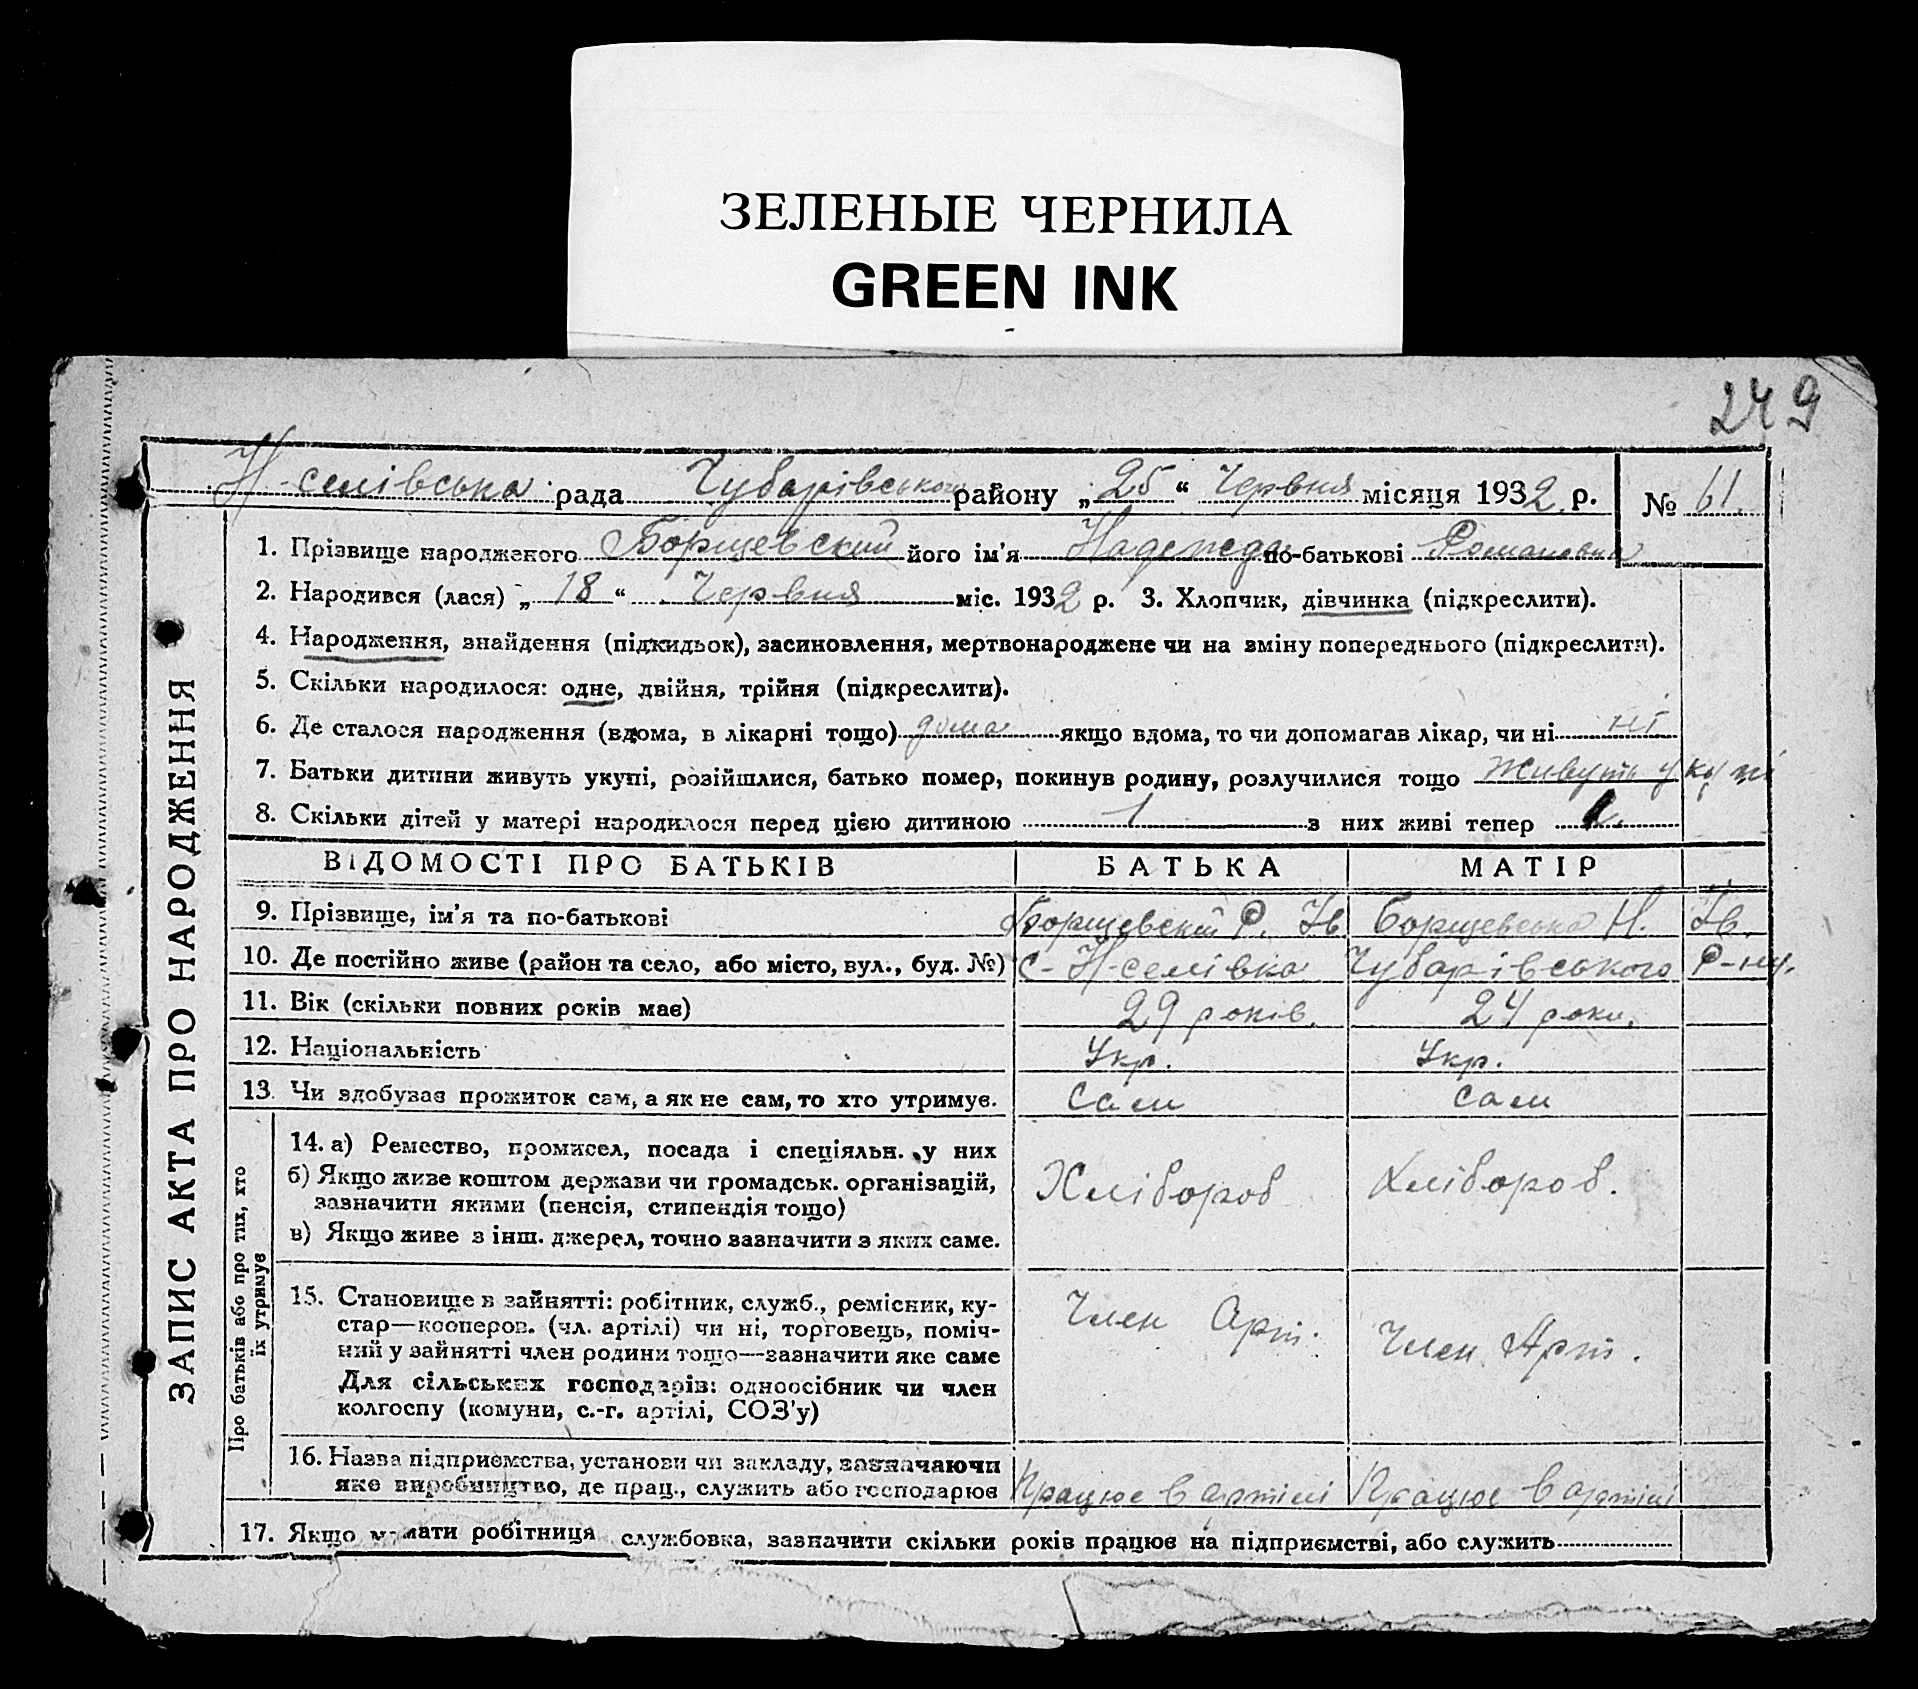 ЗЕЛЕНЫЕ ЧЕРНИЛА
GREEN INK
249
Н-селівська рада Чубарівського району „25“ Червня місяця 1932 р. № 61.
1. Прізвище народженого Борщевский його ім'я Надежда по-батькові Романовна
2. Народився (лася) „18“ Червня міс. 1932 р. 3. Хлопчик, дівчинка (підкреслити).
4. Народження, знайдення (підкидьок), засиновлення, мертвонароджене чи на зміну попереднього (підкреслити).
5. Скільки народилося: одне, двійня, трійня (підкреслити).
6. Де сталося народження (вдома, в лікарні тощо) дома якщо вдома, то чи допомагав лікар, чи ні ні
7. Батьки дитини живуть укупі, розійшлися, батько помер, покинув родину, розлучилися тощо живуть укупі
8. Скільки дітей у матері народилося перед цією дитиною 1 з них живі тепер 1.
ВІДОМОСТІ ПРО БАТЬКІВ БАТЬКА МАТІР
9. Прізвище, ім'я та по-батькові Борщевский Р. Ів. Борщевська Н. Ів.
10. Де постійно живе (район та село, або місто, вул., буд. №) с-Н-селівка Чубарівського Р-ну.
11. Вік (скільки повних років має) 29 років. 24 роки.
12. Національність Укр. Укр.
13. Чи здобуває прожиток сам, а як не сам, то хто утримує. Сам Сам
14. а) Ремество, промисел, посада і спеціяльн. у них
б) Якщо живе коштом держави чи громадськ. організацій,
зазначити якими (пенсія, стипендія тощо)
Хлібороб Хлібороб.
в) Якщо живе з інш. джерел, точно зазначити з яких саме.
15. Становище в зайнятті: робітник, служб., ремісник, ку-
стар—кооперов. (чл. артілі) чи ні, торговець, поміч-
ний у зайнятті член родини тощо—зазначити яке саме
Член Арт. Член Арт.
Для сільських господарів: одноосібник чи член
колгоспу (комуни, с.-г. артілі, СОЗ'у)
16. Назва підприємства, установи чи закладу, зазначаючи
яке виробництво, де прац., служить або господарює Працює в артілі Працює в артілі
17. Якщо мати робітниця службовка, зазначити скільки років працює на підприємстві, або служить
ЗАПИС АКТА ПРО НАРОДЖЕННЯ
Про батьків або про тих, хто
їх утримує